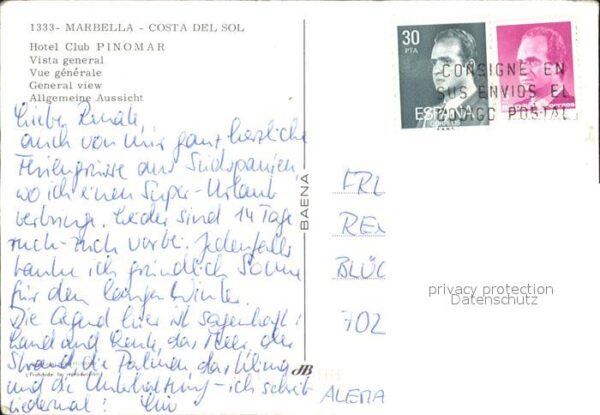 1333- MARBELLA - COSTA DEL SOL
Hotel Club PINOMAR
Vista general
Vue générale
General view
Allgemeine Aussicht
Liebe Renate,
auch von mir ganz herzliche
Feriengrüsse aus Südspanien
wo ich einen Super-Urlaub
verbringe. Leider sind 14 Tage
ruch-zuch vorbei. Jedenfalls
tanke ich gründlich Sonne
für den langen Winter.
Die Gegend hier ist sagenhaft:
Land und Leute, das Meer, der
Strand die Palmen, das Klima
und die Unterhaltung - ich schreib
niedermal!
BAENA
30
PTA
ESPAÑA
CORREOS
CONSIGNE EN
SUS ENVIOS EL
POSTAL
FRL
REN
BLÜC
702
ALEMA
privacy protection
Datenschutz